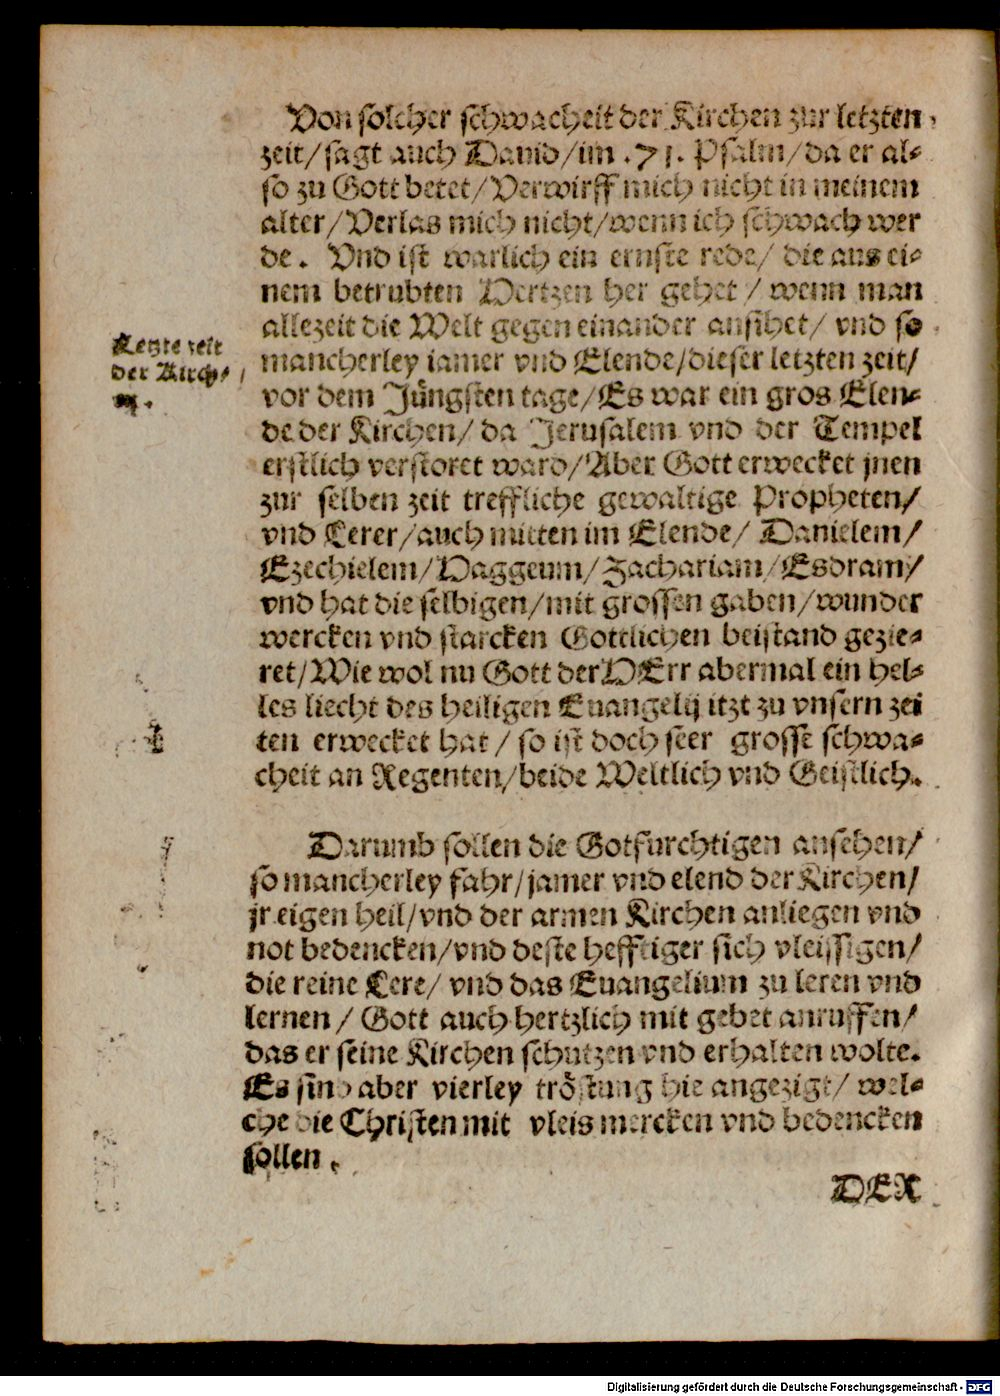 Von solcher schwacheit der Kirchen zur letzten
zeit/sagt auch Dauid/im .71. Psalm/da er al-
so zu Gott betet/Verwirff mich nicht in meinem
alter/Verlas mich nicht/wenn ich schwach wer
de. Vnd ist warlich ein ernste rede/ die aus ei-
nem betrubten Hertzen her gehet / wenn man
allezeit die Welt gegen einander ansihet/ vnd so
Letzte zeit
der Kirch-
en.
mancherley iamer vnd Elende/dieser letzten zeit/
vor dem Jüngsten tage/Es war ein gros Elen-
de der Kirchen/ da Jerusalem vnd der Tempel
erstlich verstoret ward/Aber Gott erwecket jnen
zur selben zeit treffliche gewaltige Propheten/
vnd Lerer/auch mitten im Elende/ Danielem/
Ezechielem/Haggeum/Zachariam/Esdram/
vnd hat die selbigen/mit grossen gaben/wunder
wercken vnd starcken Gottlichen beistand gezie-
ret/Wie wol nu Gott der HErr abermal ein hel-
les liecht des heiligen Euangelij itzt zu vnsern zei
ten erwecket hat / so ist doch seer grosse schwa-
cheit an Regenten/beide Weltlich vnd Geistlich.
Darumb sollen die Gotfurchtigen ansehen/
so mancherley fahr/jamer vnd elend der Kirchen/
jr eigen heil/vnd der armen Kirchen anliegen vnd
not bedencken/vnd deste hefftiger sich vleissigen/
die reine Lere/ vnd das Euangelium zu leren vnd
lernen / Gott auch hertzlich mit gebet anruffen/
das er seine Kirchen schutzen vnd erhalten wolte.
Es sind aber vierley tröstung hie angezigt/ wel-
che die Christen mit vleis mercken vnd bedencken
sollen.
DER
Digitalisierung gefördert durch die Deutsche Forschungsgemeinschaft - DFG